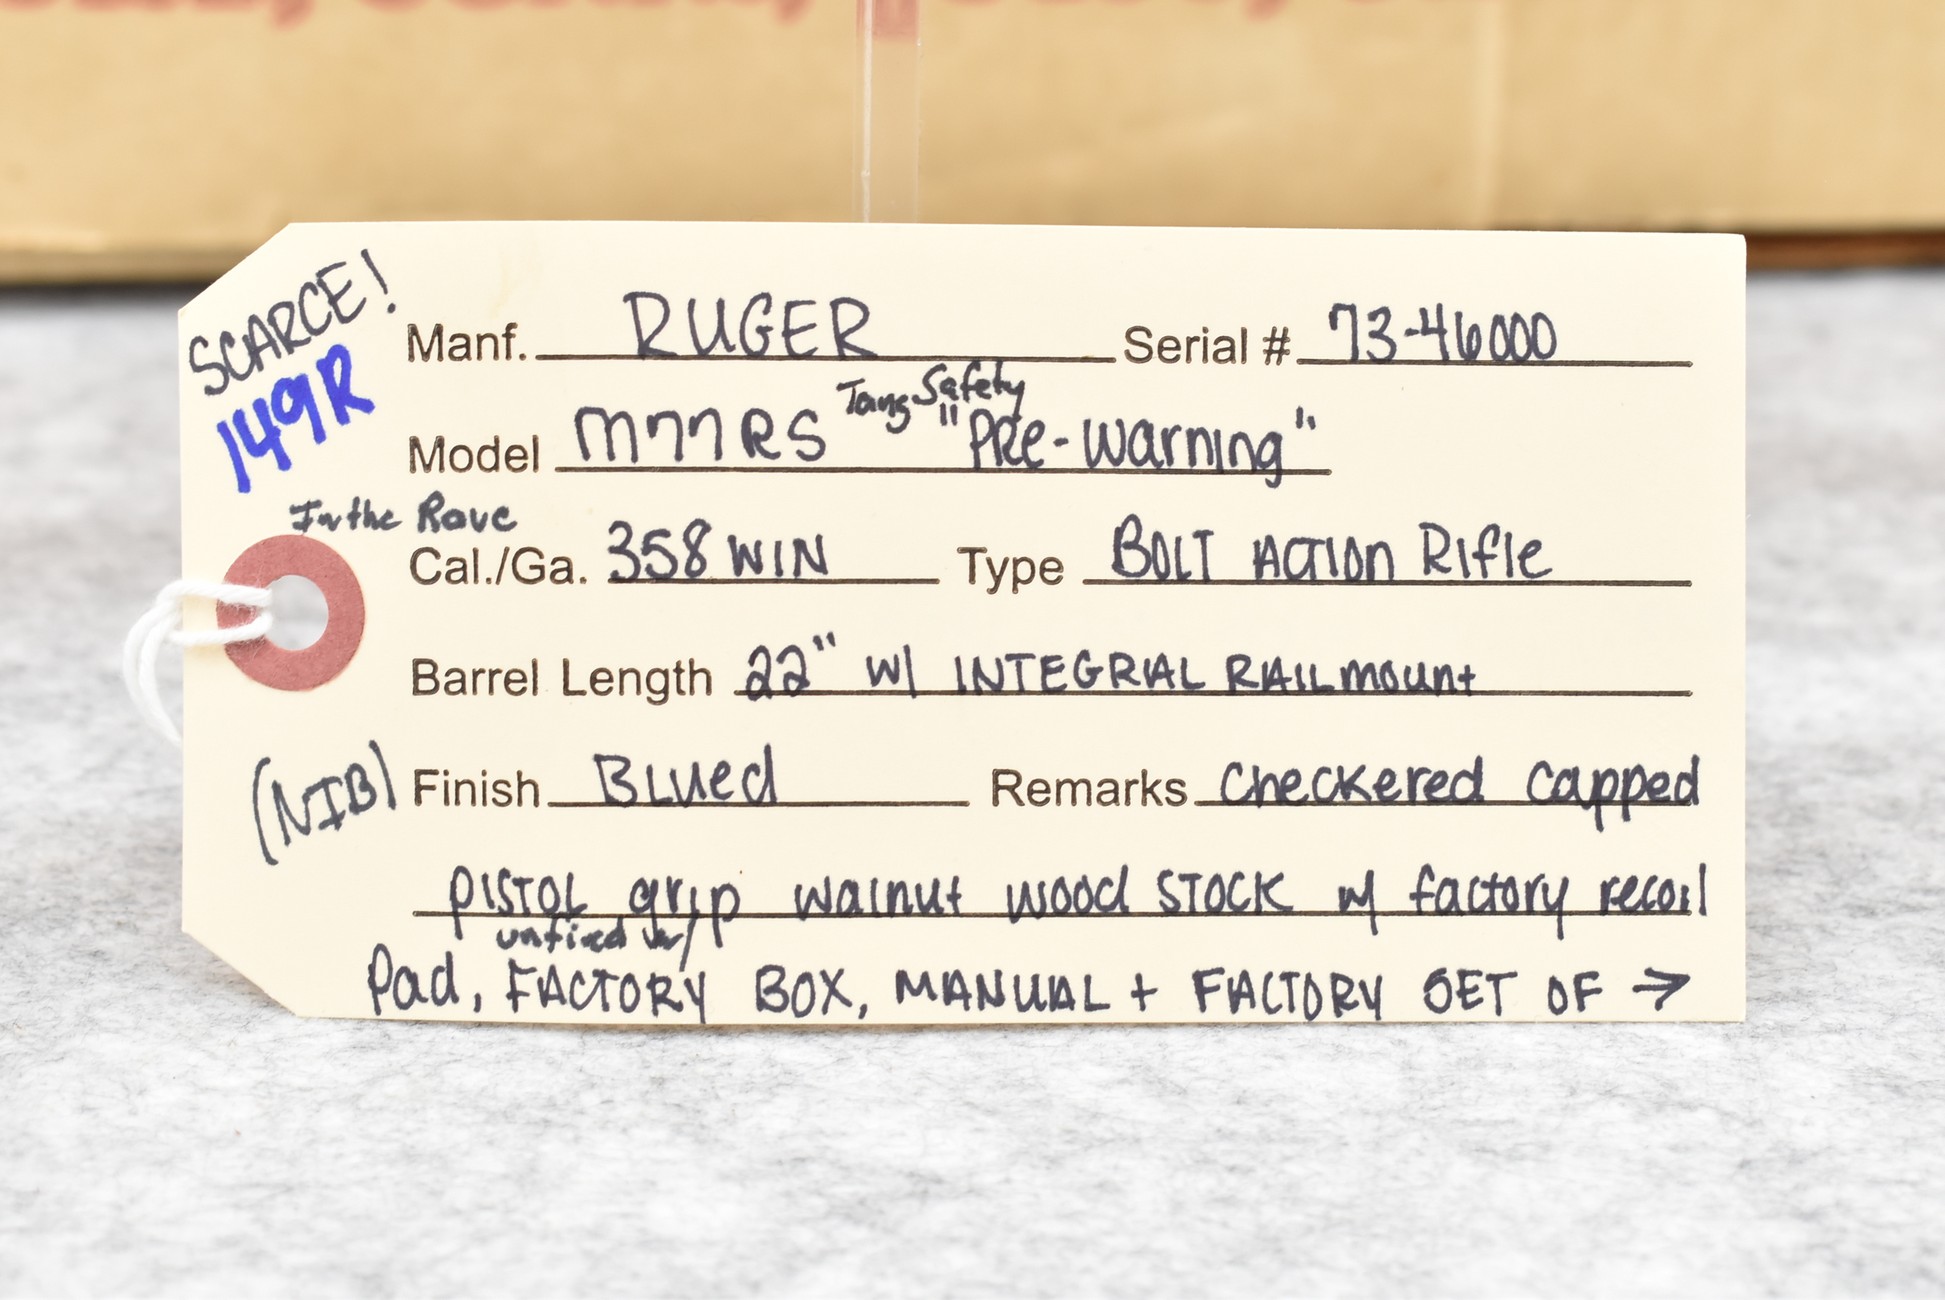 SCARCE!
149R
Manf. RUGER Serial # 73-46000
Tang Safety
Model M77RS "Pre-Warning"
In the Rare
Cal./Ga. 358 WIN Type BOLT ACTION Rifle
Barrel Length 22" w/ INTEGRAL RAIL mount
(NIB)
Finish Blued Remarks Checkered capped
pistol grip walnut wood STOCK w/ factory recoil
unfired w/
Pad, FACTORY BOX, MANUAL + FACTORY SET OF →